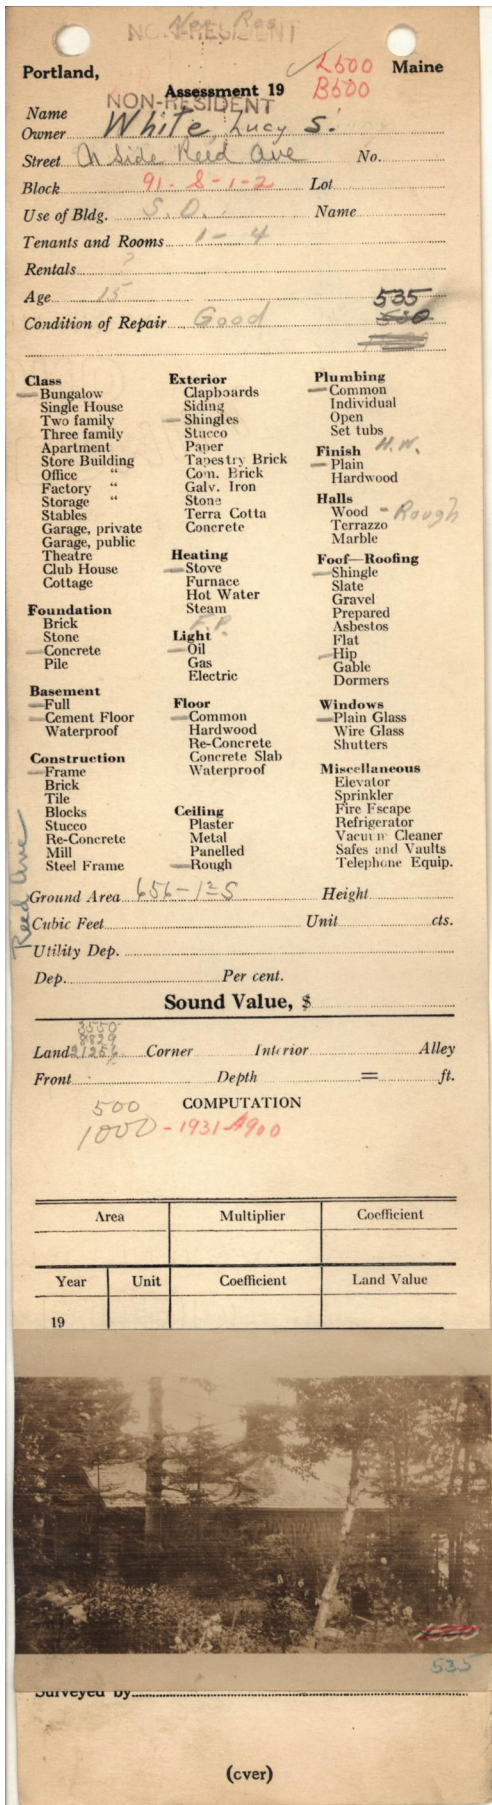 Non Res
NON-RESIDENT
L500
Portland, Maine
Assessment 19 B500
NON-RESIDENT
Name
Owner White, Lucy S.
Street On Side Reed Ave No.
Block 91-S-1-2 Lot
Use of Bldg. S.D. Name
Tenants and Rooms 1-4
Rentals ?
Age 15 535
Condition of Repair Good 530
Class
Bungalow
Single House
Two family
Three family
Apartment
Store Building
Office "
Factory "
Storage "
Stables
Garage, private
Garage, public
Theatre
Club House
Cottage
Foundation
Brick
Stone
Concrete
Pile
Basement
Full
Cement Floor
Waterproof
Construction
Frame
Brick
Tile
Blocks
Stucco
Re-Concrete
Mill
Steel Frame
Exterior
Clapboards
Siding
Shingles
Stucco
Paper
Tapestry Brick
Com. Brick
Galv. Iron
Stone
Terra Cotta
Concrete
Heating
Stove
Furnace
Hot Water
Steam
F.P.
Light
Oil
Gas
Electric
Floor
Common
Hardwood
Re-Concrete
Concrete Slab
Waterproof
Ceiling
Plaster
Metal
Panelled
Rough
Plumbing
Common
Individual
Open
Set tubs
Finish H.W.
Plain
Hardwood
Halls
Wood - Rough
Terrazzo
Marble
Foof—Roofing
Shingle
Slate
Gravel
Prepared
Asbestos
Flat
Hip
Gable
Dormers
Windows
Plain Glass
Wire Glass
Shutters
Miscellaneous
Elevator
Sprinkler
Fire Escape
Refrigerator
Vacuum Cleaner
Safes and Vaults
Telephone Equip.
Reed Ave
Ground Area 656-1 S Height
Cubic Feet Unit cts.
Utility Dep.
Dep. Per cent.
Sound Value, $
3550
8829
Land 21256 Corner Interior Alley
Front Depth = ft.
500 COMPUTATION
1000 - 1931 - 900
Area Multiplier Coefficient
Year Unit Coefficient Land Value
19
535
Surveyed by
(cver)